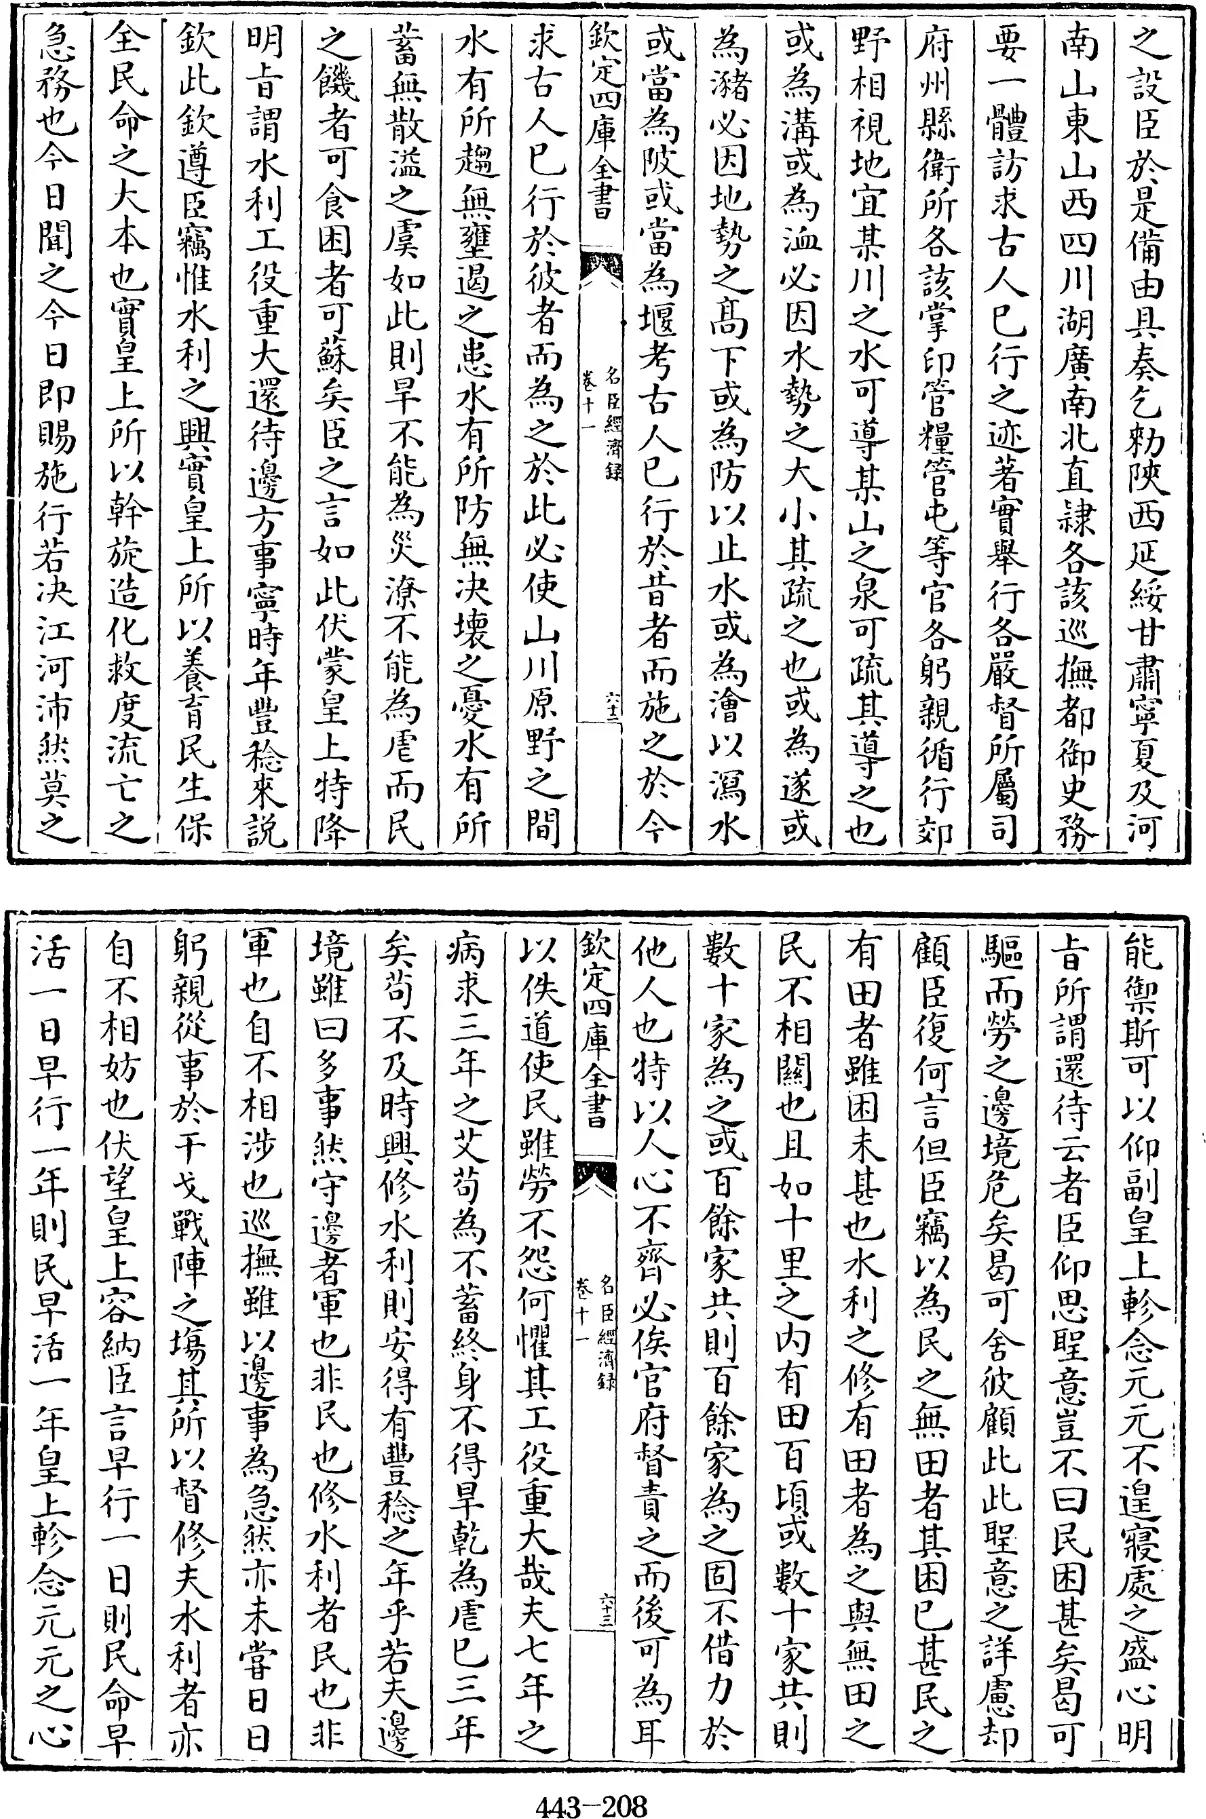 之設臣於是備由具奏乞勑陝西延綏甘肅寧夏及河
南山東山西四川湖廣南北直隷各該巡撫都御史務
要一體訪求古人已行之迹著實舉行各嚴督所屬司
府州縣衛所各該掌印管糧管屯等官各躬親循行郊
野相視地宜某川之水可導某山之泉可疏其導之也
或為溝或為洫必因水勢之大小其疏之也或為遂或
為瀦必因地勢之髙下或為防以止水或為澮以瀉水
或當為陂或當為堰考古人已行於昔者而施之於今
欽定四庫全書
名臣經濟録
卷十一
六十二
求古人已行於彼者而為之於此必使山川原野之間
水有所趨無壅遏之患水有所防無決壞之憂水有所
蓄無散溢之虞如此則旱不能為災潦不能為虐而民
之饑者可食困者可蘇矣臣之言如此伏蒙皇上特降
明旨謂水利工役重大還待邊方事寧時年豐稔來説
欽此欽遵臣竊惟水利之興實皇上所以養育民生保
全民命之大本也實皇上所以斡旋造化救度流亡之
急務也今日聞之今日即賜施行若決江河沛然莫之
能禦斯可以仰副皇上軫念元元不遑寢處之盛心明
旨所謂還待云者臣仰思聖意豈不曰民困甚矣曷可
驅而勞之邊境危矣曷可舍彼顧此此聖意之詳慮却
顧臣復何言但臣竊以為民之無田者其困已甚民之
有田者雖困未甚也水利之修有田者為之與無田之
民不相闗也且如十里之内有田百頃或數十家共則
數十家為之或百餘家共則百餘家為之固不借力於
他人也特以人心不齊必俟官府督責之而後可為耳
欽定四庫全書
名臣經濟録
卷十一
六十三
以佚道使民雖勞不怨何懼其工役重大哉夫七年之
病求三年之艾苟為不蓄終身不得旱乾為虐已三年
矣苟不及時興修水利則安得有豐稔之年乎若夫邊
境雖曰多事然守邊者軍也非民也修水利者民也非
軍也自不相涉也巡撫雖以邊事為急然亦未嘗日日
躬親從事於干戈戰陣之塲其所以督修夫水利者亦
自不相妨也伏望皇上容納臣言早行一日則民命早
活一日早行一年則民早活一年皇上軫念元元之心
443-208